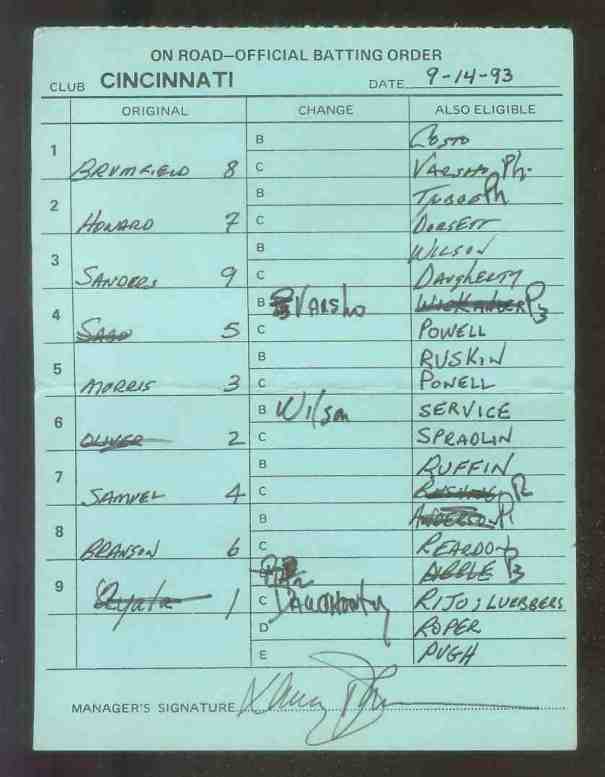 ON ROAD—OFFICIAL BATTING ORDER
CLUB CINCINNATI DATE 9-14-93
ORIGINAL CHANGE ALSO ELIGIBLE
B COSTO
1 BRUMFIELD 8 C VARSHO Ph.
B TUBBS Ph
2 HOWARD 7 C DORSETT
B WILSON
3 SANDERS 9 C DAUGHERTY
4 SABO 5 B VARSHO WICKANDER P3
C POWELL
B RUSKIN
5 MORRIS 3 C POWELL
B Wilson SERVICE
6 OLIVER 2 C SPRADLIN
B RUFFIN
7 SAMUEL 4 C P2
B ANDERSON P1
8 BRANSON 6 C REARDON
P3
9 Ayala 1 C DAUGHERTY RIJO; LUEBBERS
D ROPER
E PUGH
MANAGER'S SIGNATURE